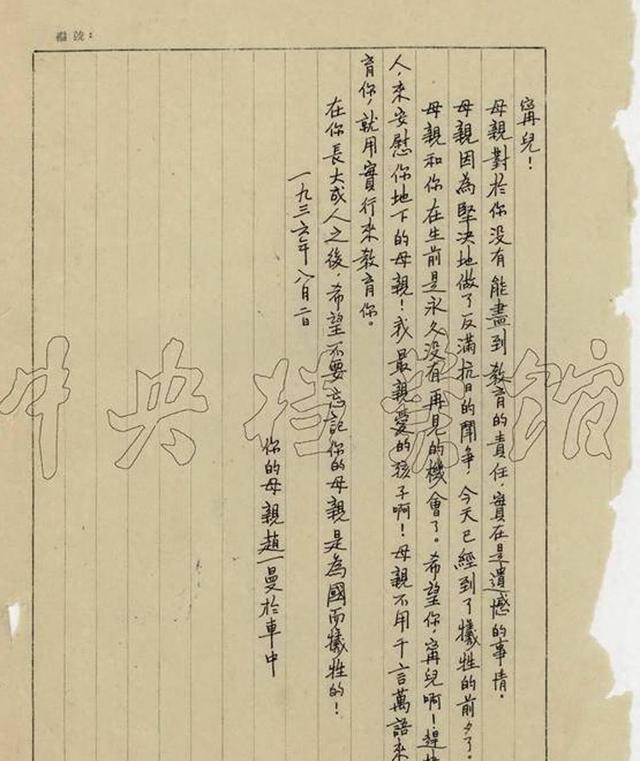 編號：
寗兒！
母親對於你没有能盡到教育的責任，實在是遺憾的事情。
母親因為堅决地做了反滿抗日的鬥争，今天已經到了犧牲的前夕了。
母親和你在生前是永久没有再見的機會了。希望你，寗兒啊！趕
人，來安慰你地下的母親！我最親愛的孩子啊！母親不用千言萬語來
育你，就用實行來教育你。
在你長大成人之後，希望不要忘記你的母親是為國而犧牲的！
一九三六年八月二日
你的母親趙一曼於車中
中央档案馆